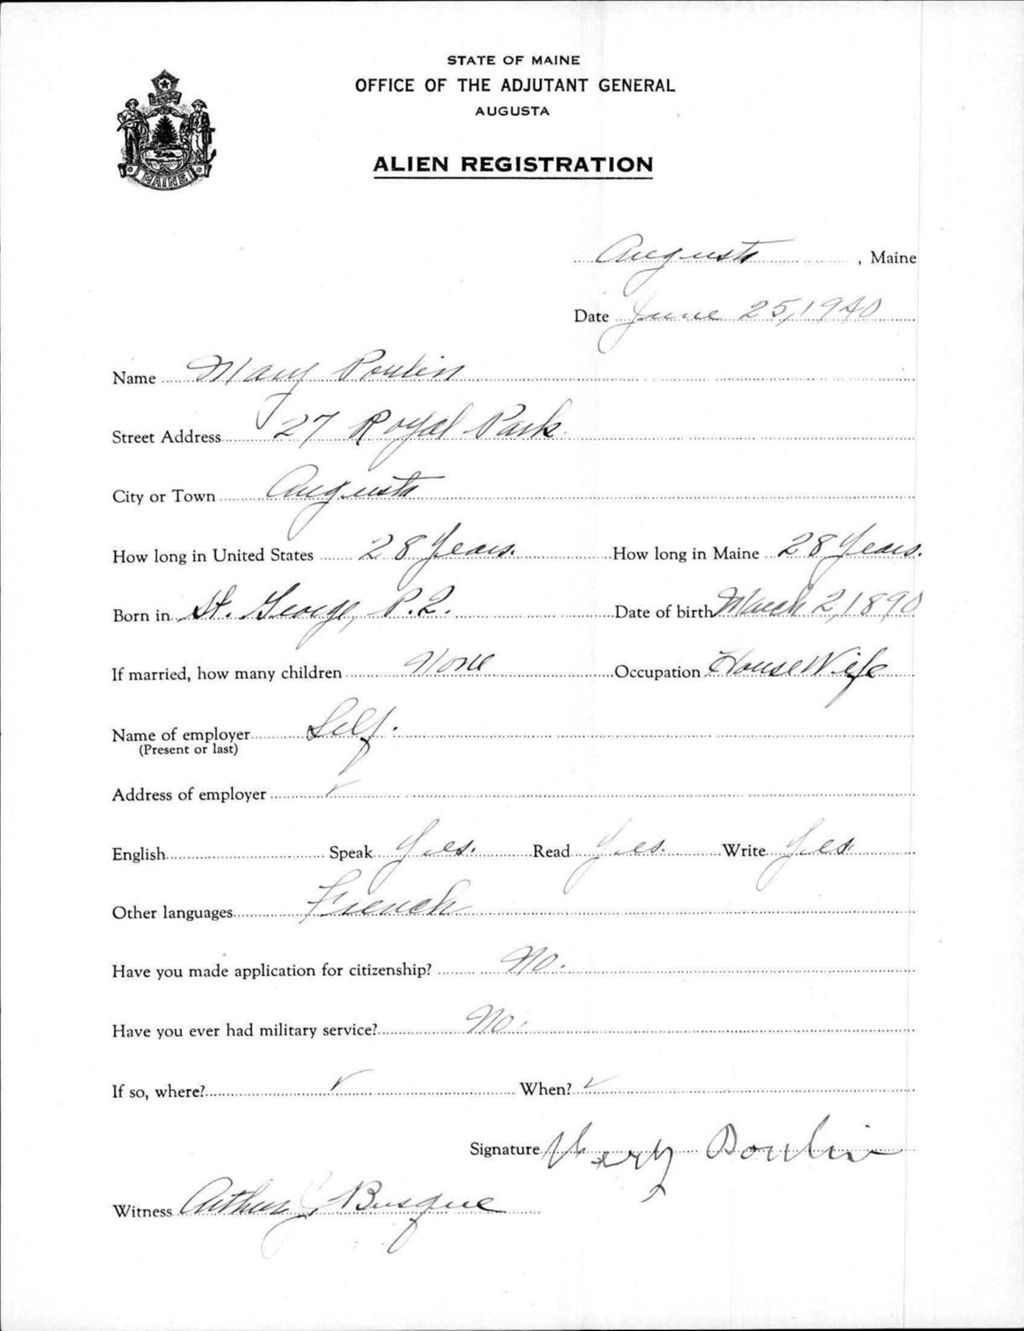 STATE OF MAINE
OFFICE OF THE ADJUTANT GENERAL
AUGUSTA
ALIEN REGISTRATION
MAINE
Augusta, Maine
Date June 25, 1940
Name Mary Poulin
Street Address 27 Royal Park
City or Town Augusta
How long in United States 28 Years. How long in Maine 28 Years.
Born in St. George, P.Q. Date of birth March 2, 1890
If married, how many children None Occupation HouseWife
Name of employer Self.
(Present or last)
Address of employer ✓
English Speak Yes. Read Yes. Write Yes
Other languages French
Have you made application for citizenship? No.
Have you ever had military service? No.
If so, where? ✓ When? ✓
Signature Mary Poulin
Witness Arthur J. Busque